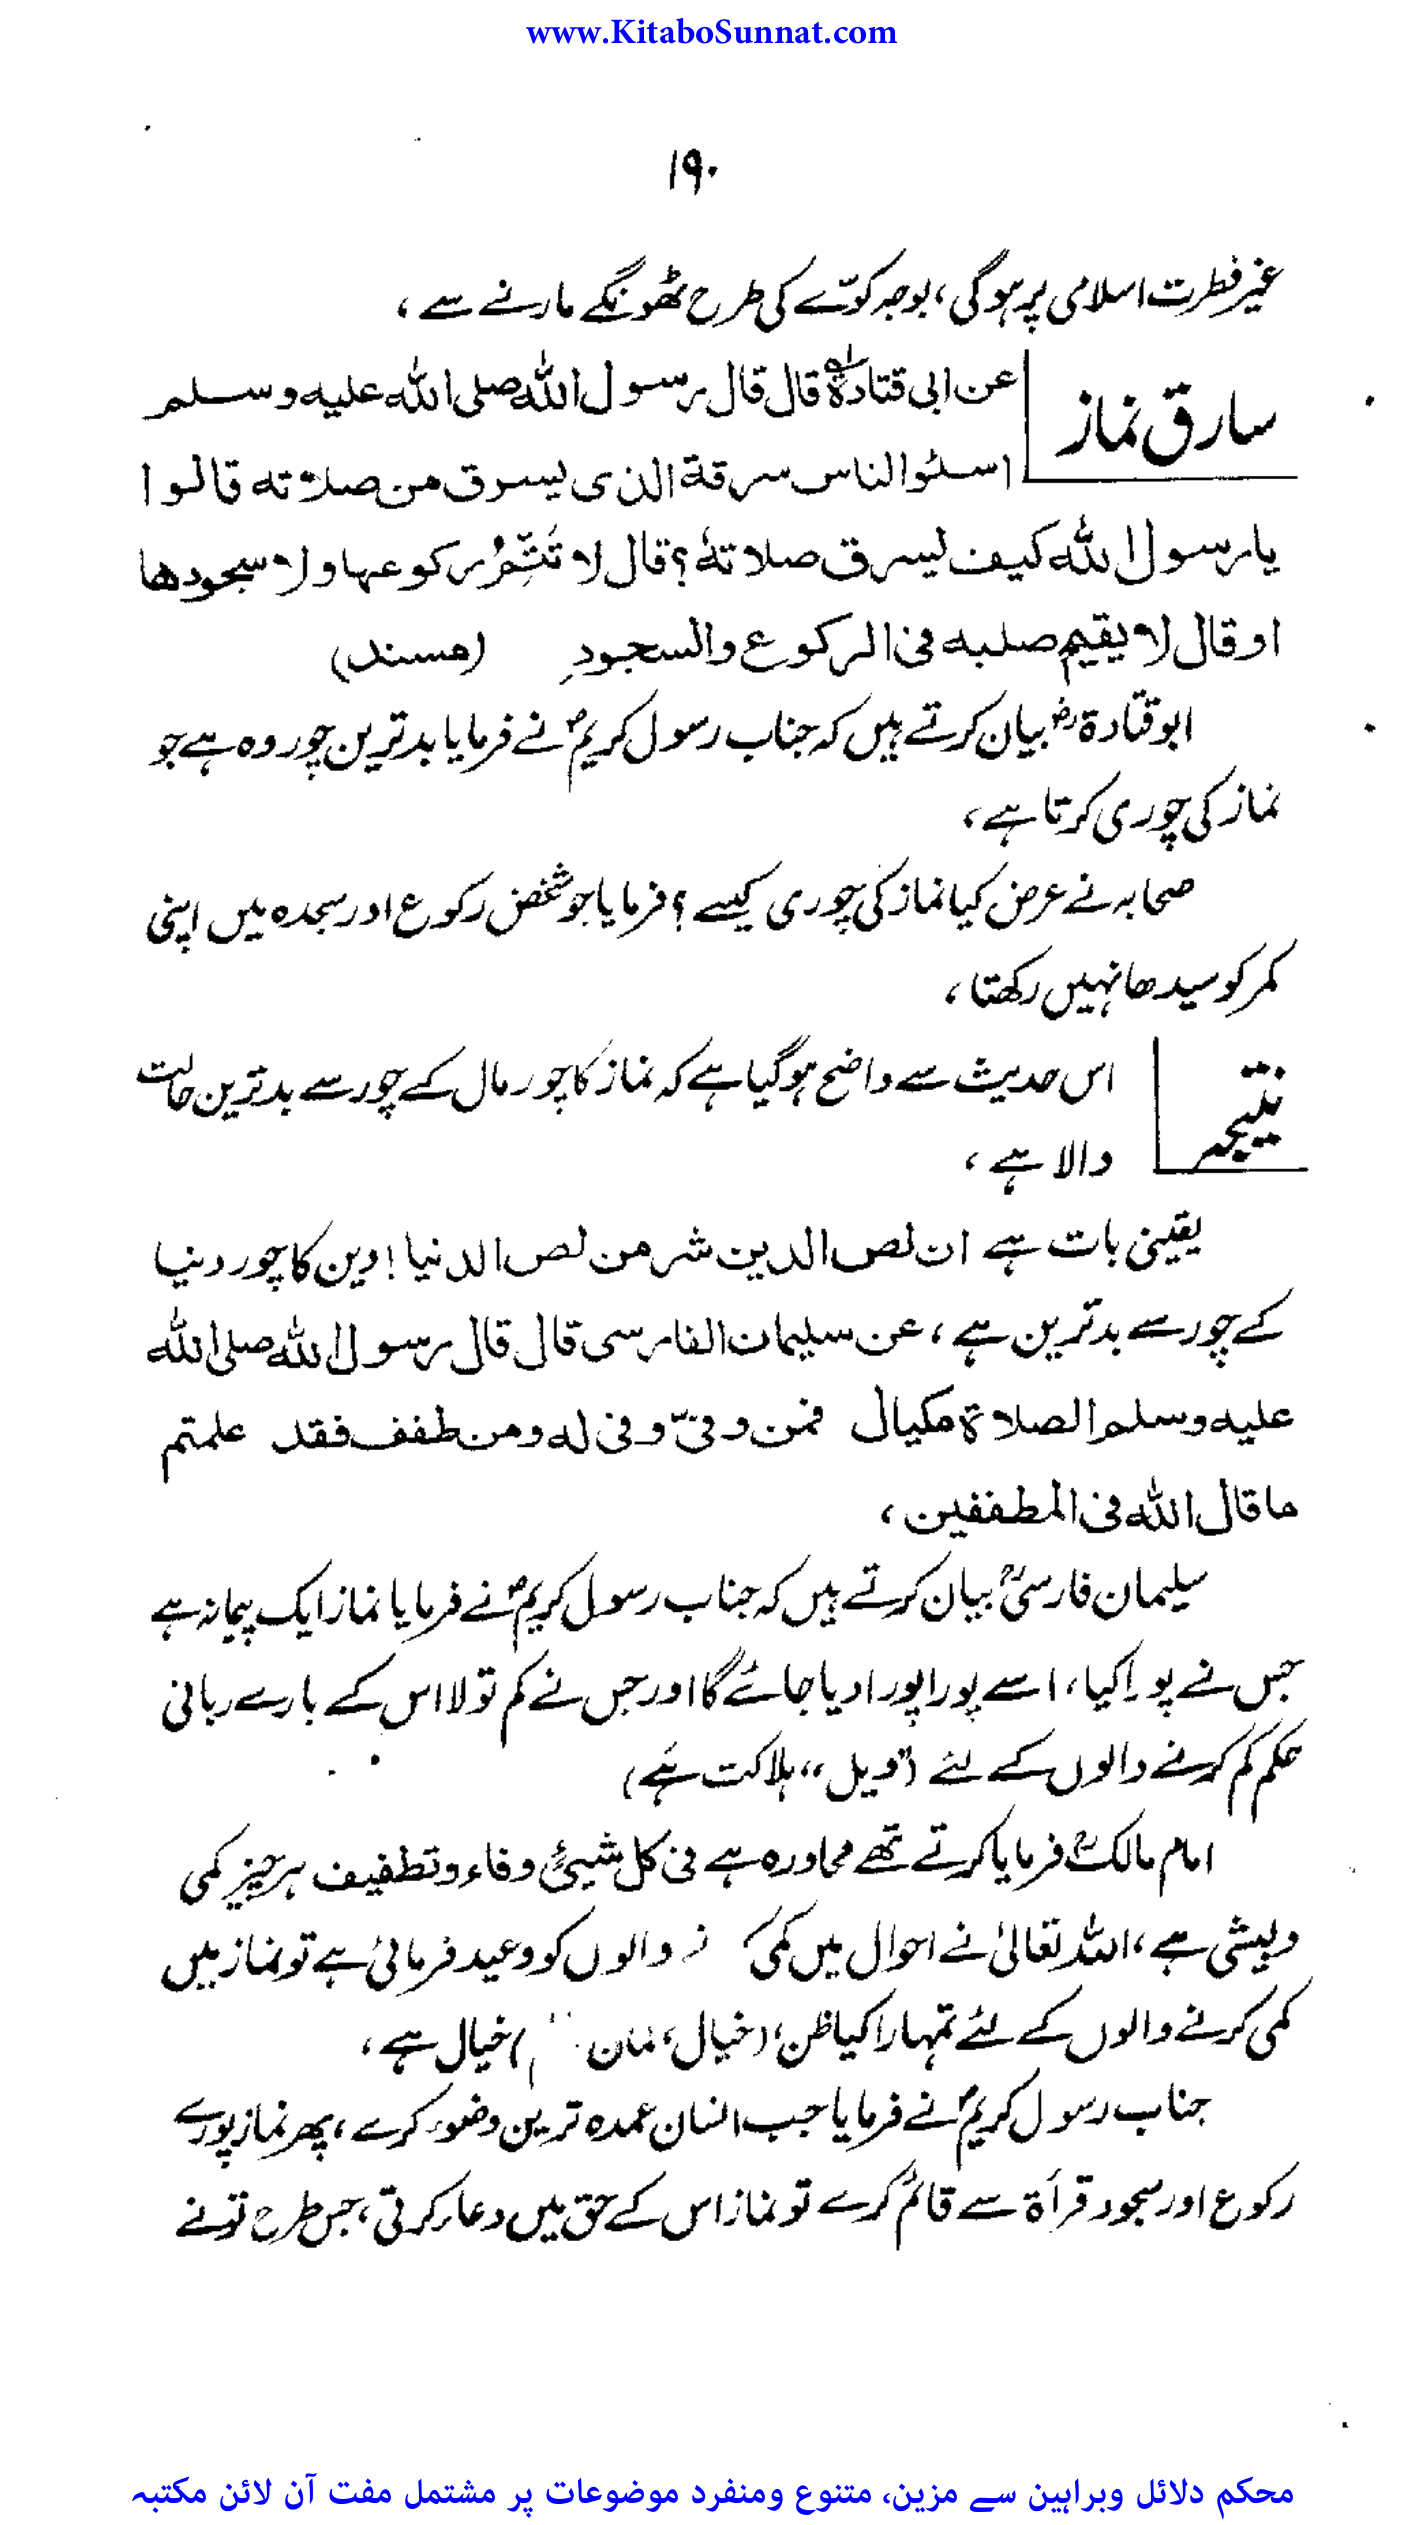 www.KitaboSunnat.com
۱۹۰
غیر فطرت اسلامی پر ہوگی، بوجہ کوّے کی طرح ٹھونگے مارنے سے،
سارق نماز
عن ابی قتادۃؓ قال قال رسول اللہ صلی اللہ علیہ وسلم
اسئوالناس سرقة الذی یسرق من صلاته قالوا
یا رسول اللہ کیف یسرق صلاتهٗ؟ قال لا تُتِمُّ رکوعها ولا سجودها
او قال لا یقیم صلبه فی الرکوع والسجودِ (مسند)
ابو قتادۃؓ بیان کرتے ہیں کہ جناب رسول کریمؐ نے فرمایا بدترین چور وہ ہے جو
نماز کی چوری کرتا ہے،
صحابہ نے عرض کیا نماز کی چوری کیسے؟ فرمایا جو شخص رکوع اور سجدہ میں اپنی
کمر کو سیدھا نہیں رکھتا،
نتیجہ
اس حدیث سے واضح ہوگیا ہے کہ نماز کا چور مال کے چور سے بدترین حالت
والا ہے،
یقینی بات ہے ان لص الدین شر من لص الدنیا! دین کا چور دنیا
کے چور سے بدترین ہے، عن سلیمان الفارسی قال قال رسول اللہ صلی اللہ
علیه وسلم الصلاة مکیال فمن وفیّ وفی له ومن طفف فقد علمتم
ما قال اللہ فی المطففین،
سلیمان فارسیؓ بیان کرتے ہیں کہ جناب رسول کریمؐ نے فرمایا نماز ایک پیمانہ ہے
جس نے پورا کیا، اسے پورا پورا دیا جائے گا اور جس نے کم تولا اس کے بارے ربانی
حکم کم کرنے والوں کے لئے ("ویل" ہلاکت ہَے)
امام مالکؒ فرمایا کرتے تھے محاورہ ہے فی کل شیئٍ وفاء وتطفیف ہر چیز کمی
وبیشی ہے، اللہ تعالیٰ نے احوال میں کمی والوں کو وعید فرمائی ہے تو نماز میں
کمی کرنے والوں کے لئے تمہارا کیا ظن، (خیال، ) خیال ہے،
جناب رسول کریمؐ نے فرمایا جب انسان عمدہ ترین وضوء کرے، پھر نماز پورے
رکوع اور سجود قرأۃ سے قائم کرے تو نماز اس کے حق میں دعا کرتی، جس طرح تونے
محکم دلائل وبراہین سے مزین، متنوع ومنفرد موضوعات پر مشتمل مفت آن لائن مکتبہ